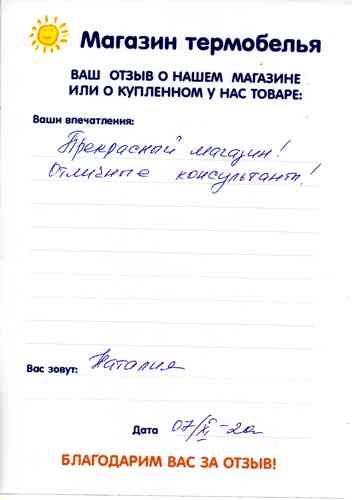 Магазин термобелья
ВАШ ОТЗЫВ О НАШЕМ МАГАЗИНЕ
ИЛИ О КУПЛЕННОМ У НАС ТОВАРЕ:
Ваши впечатления:
Прекрасный магазин!
Отличные консультанты!
Вас зовут: Наталия
Дата 07/XI-20г
БЛАГОДАРИМ ВАС ЗА ОТЗЫВ!